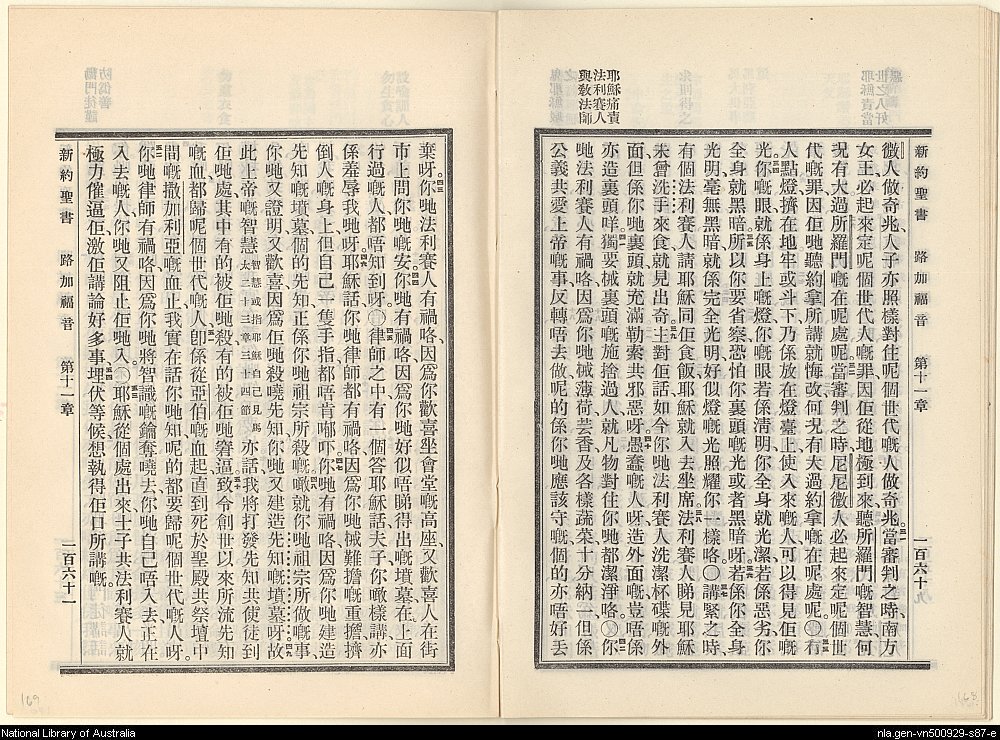 新約聖書 路加福音 第十一章 一百六十
世之人奸惡
耶穌責當
耶穌痛責
法利賽人
與教法師
徵人做奇兆、人子亦照樣對住呢個世代嘅人做奇兆。當審判之時、南方
女王必起來定呢個世代人嘅罪、因佢從地極到來聽所羅門嘅智慧、何
況有大過所羅門嘅在呢處呢。當審判之時、尼尼微人必起來定呢個世
代嘅罪、因佢哋聽約拿所講就悔改、何況有大過約拿嘅在呢處呢。〇有
人點燈、擠在地牢或斗下、乃係放在燈臺上、使入來嘅人可以得見佢嘅
光。你嘅眼就係身上嘅燈、你嘅眼若係清明、你全身就光潔、若係惡劣、你
全身就黑暗。所以你要省察、恐怕你裏頭嘅光或者黑暗呀。若係你全身
光明、毫無黑暗、就係完全光明、好似燈嘅光照耀你一樣咯。〇講緊之時、
有個法利賽人請耶穌同佢食飯、耶穌就入去坐席。法利賽人睇見耶穌
未曾洗手來食、就見出奇。主對佢話、如今你哋法利賽人洗潔杯碟嘅外
面、但係你哋裏頭就充滿勒索共邪惡呀。愚蠢嘅人呀、造外面嘅、豈唔係
亦造裏頭咩。獨要械裏頭嘅施捨過人、就凡物對住你哋都潔淨咯。〇你
哋法利賽人有禍咯、因爲你哋械薄荷芸香及各樣蔬菜十分納一、但係
公義共愛上帝嘅事、反轉唔去做、呢的係你哋應該守嘅、個的亦唔好丟
棄呀。你哋法利賽人有禍咯、因爲你歡喜坐會堂嘅高座、又歡喜人在街
市上問你哋嘅安。你哋有禍咯、因爲你哋好似唔睇得出嘅墳墓、在上面
行過嘅人都唔知到呀。〇律師之中有一個答耶穌話、夫子、你噉樣講、亦
係羞辱我哋呀。耶穌話、你哋律師都有禍咯、因爲你哋械難擔嘅重擔擠
倒人嘅身上、但自己一隻手指都唔肯啷吓。你哋有禍咯、因爲你哋建造
先知嘅墳墓、個的先知正係你哋祖宗所殺嘅。噉就你哋祖宗所做嘅事、
你哋又證明又歡喜、因爲佢哋殺曉先知、你哋又建造先知嘅墳墓呀。故
此上帝嘅智慧智慧或指耶穌自己見馬太二十三章三十四節亦話、我將打發先知共使徒到
佢哋處、其中有的被佢哋殺、有的被佢哋窘逼、致令創世以來所流先知
嘅血、都歸呢個世代嘅人、卽係從亞伯嘅血起、直到死於聖殿共祭壇中
間嘅撒加利亞嘅血止、我實在話你哋知、呢的都要歸呢個世代嘅人呀。
你哋律師有禍咯、因爲你哋將智識嘅鑰奪曉去、你哋自己唔入去、正在
入去嘅人、你哋又阻止佢哋入。〇耶穌從個處出來、士子共法利賽人就
極力催逼佢、激佢講論好多事、埋伏等候、想執得佢口所講嘅。
新約聖書 路加福音 第十一章 一百六十一
169
168
National Library of Australia
nla.gen-vn500929-s87-e